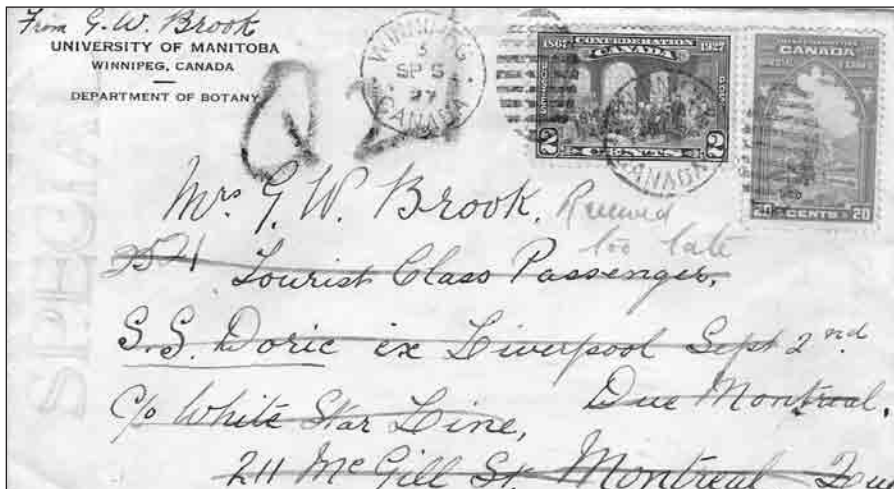 From G. W. Brook
UNIVERSITY OF MANITOBA
WINNIPEG, CANADA
DEPARTMENT OF BOTANY
WINNIPEG
SP 5
27
CANADA
CONFEDERATION
1867 CANADA 1927
2 CENTS 2
CANADA
20 CENTS 20
SPECIAL
Mrs G. W. Brook.
Received
too late
2521
Tourist Class Passenger.
S.S. Doric ex Liverpool Sept 2nd
C/o White Star Line, Due Montreal.
211 McGill St. Montreal Que